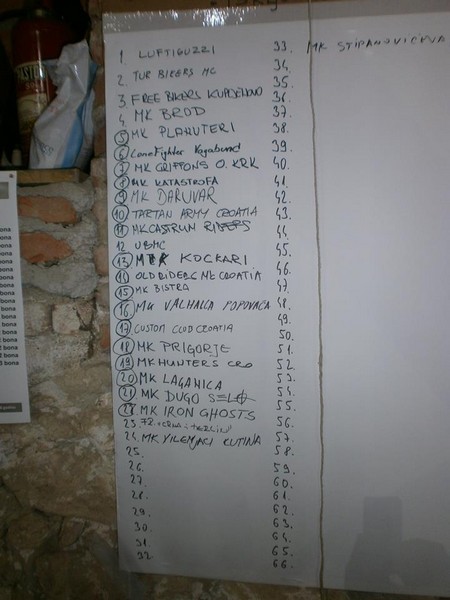 1. LUFTIGUZZI
2. TUR BIKERS MC
3. FREE BIKERS KUPLJENOVO
4. MK BROD
5. MK PLANUTERI
6. Lone Fighter Vagabund
7. MK GRIFFONS O. KRK
8. MK KATASTROFA
9. MK DARUVAR
10. TARTAN ARMY CROATIA
11. MK CASTRUM RIDERS
12 UBMC
13. MK KOCKARI
14. OLD RIDERS NE CROATIA
15. MK BISTRA
16. MK VALHALLA POPOVAČA
17. CUSTOM CLUB CROATIA
18. MK PRIGORJE
19. MK HUNTERS CRO
20. MK LAGANICA
21. MK DUGO SELO
22. MK IRON GHOSTS
23.
24. MK VILENJACI KUTINA
25.
26.
27.
28.
29.
30.
31.
32.
33. MK STIPANOVIČEVA
34.
35.
36.
37.
38.
39.
40.
41.
42.
43.
44.
45.
46.
47.
48.
49.
50.
51.
52.
53.
54.
55.
56.
57.
58.
59.
60.
61.
62.
63.
64.
65.
66.
bona
bona
bona
bona
bona
bona
bona
bona
bona
bona
bona
bona